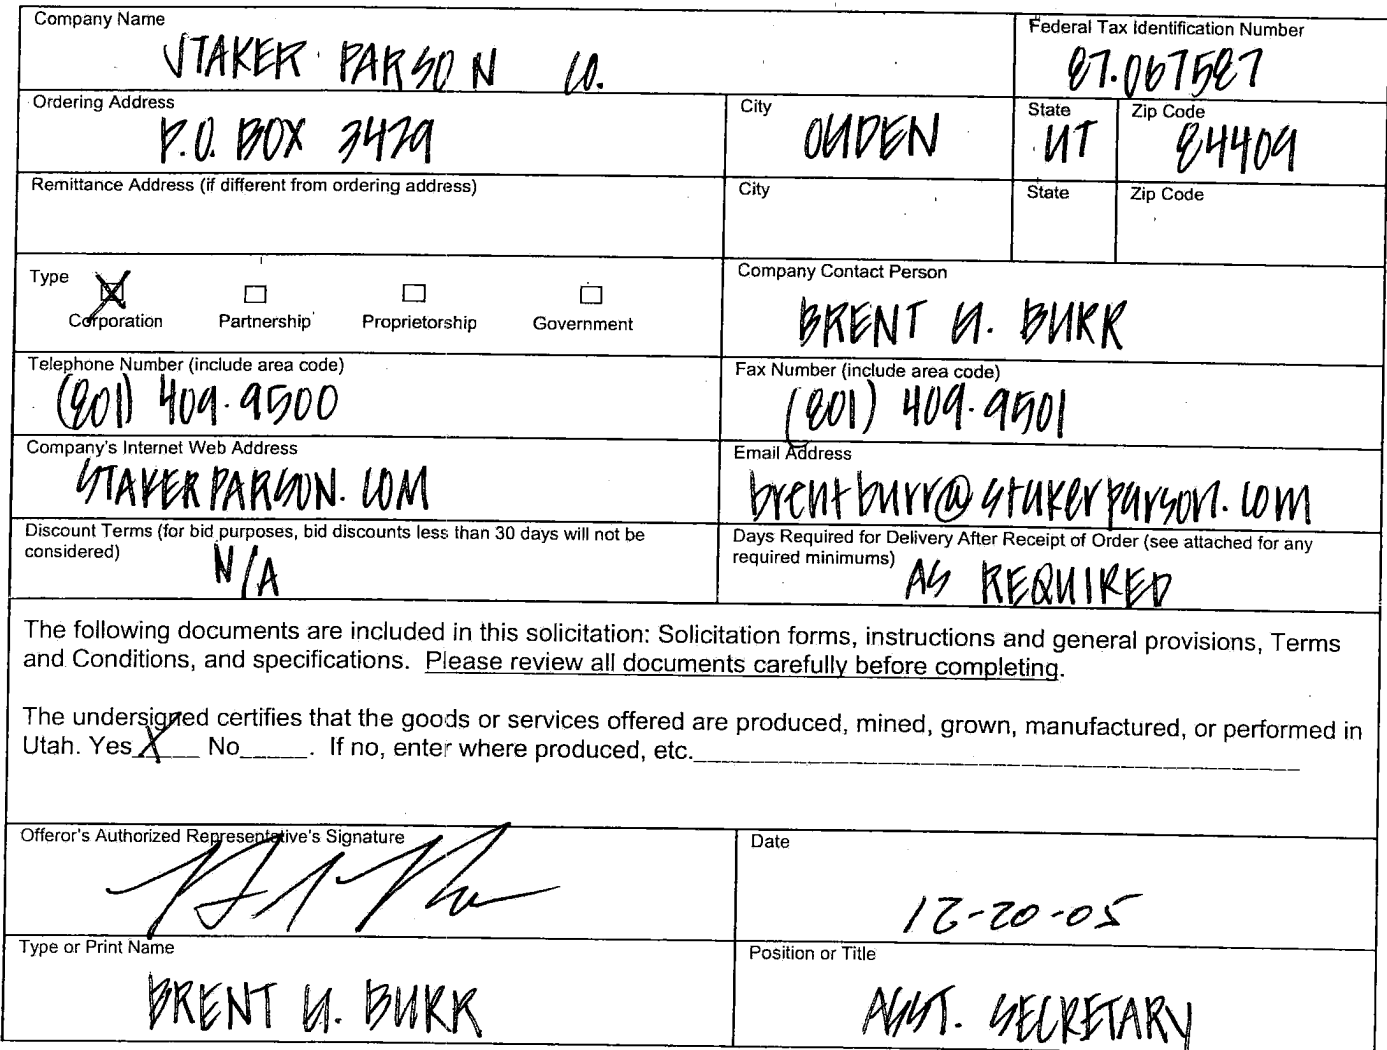 Company Name
STAKER PARSON CO.
Federal Tax Identification Number
87.067587
Ordering Address
P.O. BOX 3429
City
OGDEN
State
UT
Zip Code
84409
Remittance Address (if different from ordering address)
City
State
Zip Code
Type
Corporation Partnership Proprietorship Government
Company Contact Person
BRENT G. BURR
Telephone Number (include area code)
(801) 409.9500
Fax Number (include area code)
(801) 409.9501
Company's Internet Web Address
STAKERPARSON.COM
Email Address
brentburr@stakerparson.com
Discount Terms (for bid purposes, bid discounts less than 30 days will not be
considered)
N/A
Days Required for Delivery After Receipt of Order (see attached for any
required minimums)
AS REQUIRED
The following documents are included in this solicitation: Solicitation forms, instructions and general provisions, Terms
and Conditions, and specifications. Please review all documents carefully before completing.
The undersigned certifies that the goods or services offered are produced, mined, grown, manufactured, or performed in
Utah. Yes X No_____. If no, enter where produced, etc.
Offeror's Authorized Representative's Signature
Date
12-20-05
Type or Print Name
BRENT G. BURR
Position or Title
ASST. SECRETARY